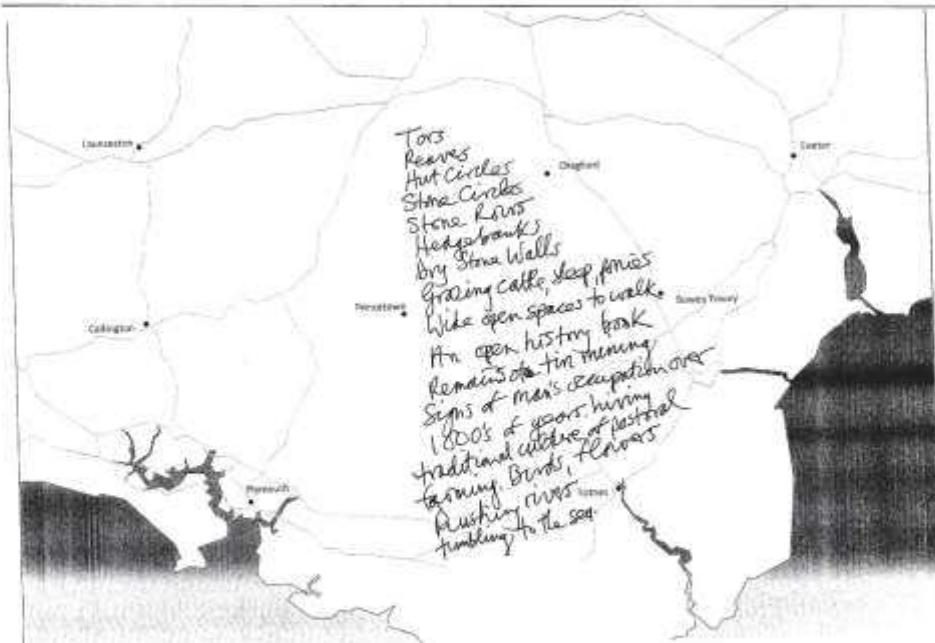 Launceston
Exeter
Chagford
Princetown
Bovey Tracey
Callington
Plymouth
Totnes
Tors
Reaves
Hut Circles
Stone Circles
Stone Rows
Hedgebanks
Dry Stone Walls
Grazing cattle, sheep, ponies
Wide open spaces to walk
An open history book
Remains of tin mining
Signs of man's occupation over
1800's of years. living
traditional culture of pastoral
farming. Birds, flowers
Rushing rivers
tumbling to the sea.